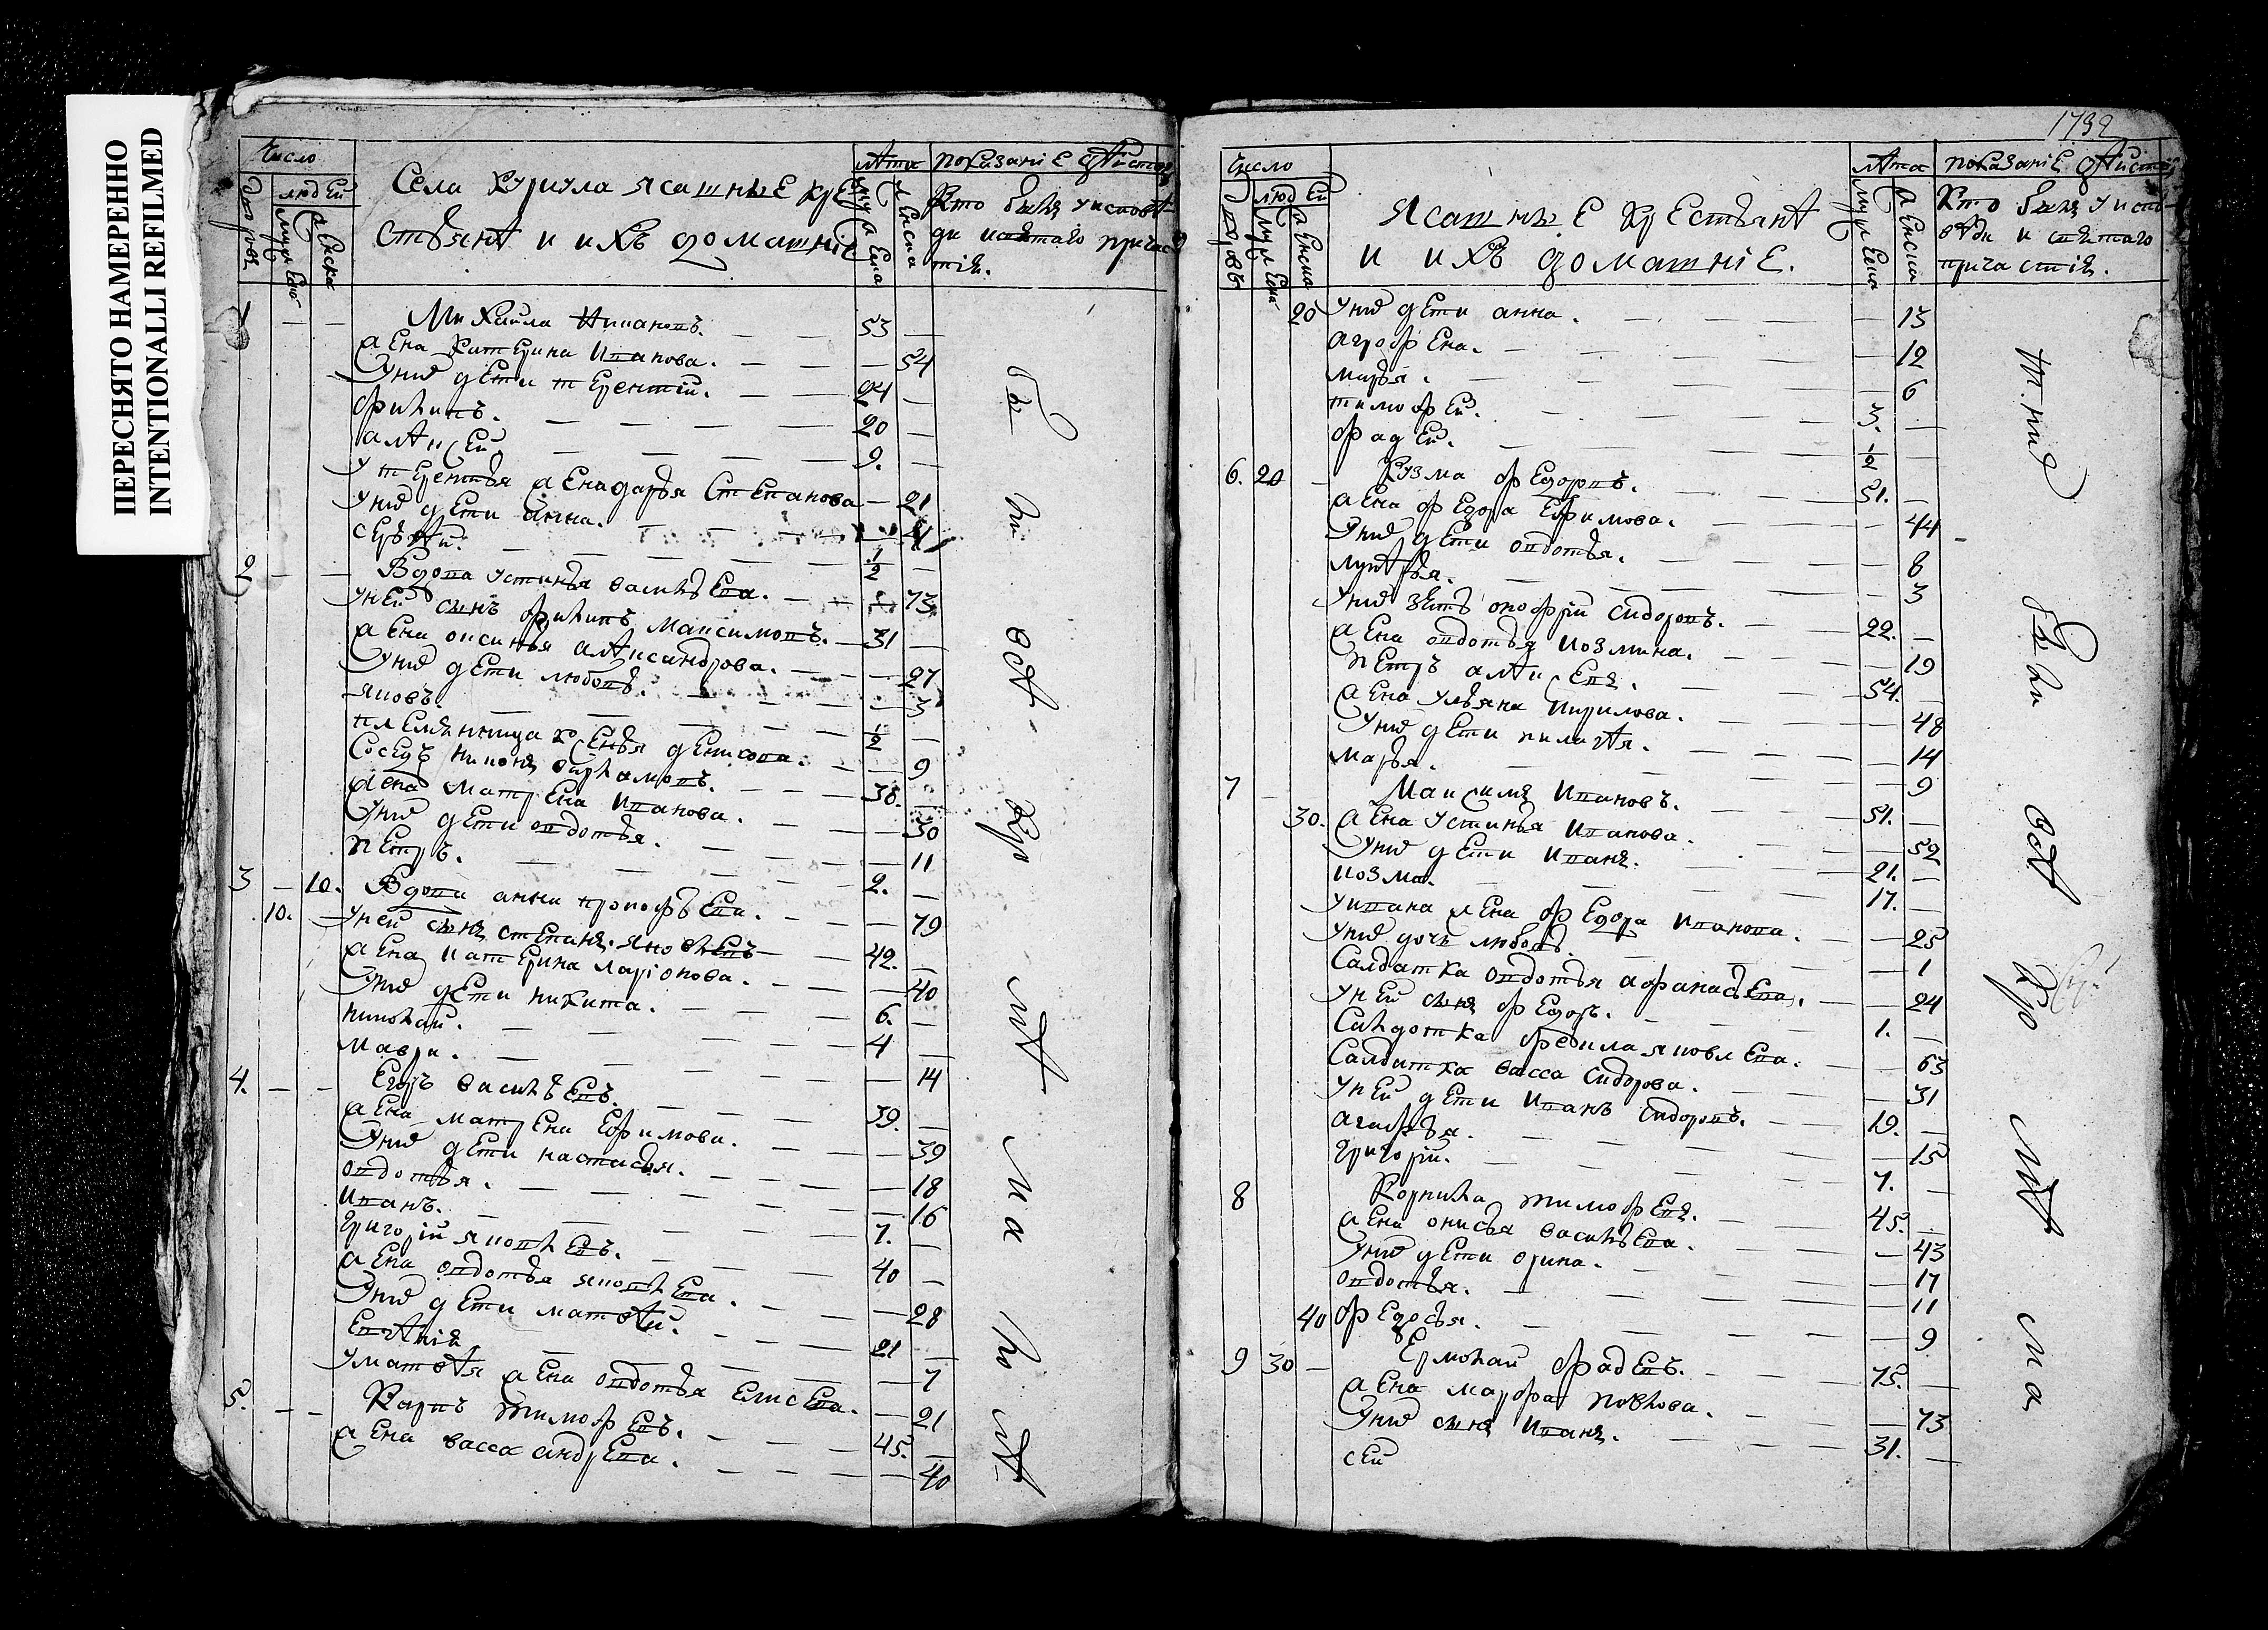 ПЕРЕСНЯТО НАМЕРЕННО
INTENTIONALLI REFILMED
Число
людей
дворовъ
мужеска
женска
Села ясашные кре
стьянѣ и ихъ домашніе
лѣта
мужеска
женска
показаніе дѣйств
Кто былъ у исповѣ
ди и святаго причас
тія.
1 — — Михаила Ивановъ. 53 —
жена Катерина Иванова. — 54
У нихъ дети терентій. 24 —
филипъ. 20 —
алѣксей. 9. —
у терентья жена дарья Степанова — 21
У нихъ дети анна. —
сергѣй. 1/2 —
2 — — Вдова устинья васильева. — 73
у ней сынъ филипъ Максимовъ. 31 —
жена оксинья алѣксандрова. — 27
У нихъ дети любовь. — 3
яковъ. 1/2 —
племянница денисова. — 9
Соседъ никонъ варламовъ. 38. —
жена матрена Иванова. — 30
У нихъ дети овдотья. — 11
петръ. 2. —
3 — 10. Вдова анна прокофьева. — 79
10. — у ней сынъ степанъ яковлевъ 42. —
жена катерина ларіонова. — 40
У нихъ дети никита. 6. —
николай. 4 —
Мавра. — 14
4. — — Егоръ васильевъ. 39. —
жена матрена Ефимова. — 39
У нихъ дети настасья. — 18
овдотья. — 16
Иванъ. 7. —
григорій яковлевъ. 40 —
жена овдотья яковлева. — 28
У нихъ дети матвѣй. 21 —
Евгѣнія — 7
у матвѣя жена овдотья Елисева. — 21
5. — — Карпъ тимофевъ. 45. —
жена васса андрева. — 40
бы
ли
всѣ
кро
мѣ
ма
лѣ
1792
Число
людей
дворовъ
мужеска
женска
Ясашные крестьянѣ
и ихъ домашніе.
лѣта
мужеска
женска
показаніе дѣйств
Кто былъ у испо
вѣди и святаго
причастія.
20 У нихъ дети анна. — 13
агрофена. — 12
марья. — 6
тимофей. 3. —
фадей. 1/2 —
6. 20 — Кузма федоровъ. 51. —
жена федора Ефимова. — 44
У нихъ дети овдотья. — 8
лукѣрья. — 3
У нихъ зять онофрій сидоровъ. 22. —
жена овдотья козмина. — 19
петръ алѣксевъ. 54. —
жена ульяна кирилова. — 48
У нихъ дети пилагѣя. — 14
марья. — 9
7 Максимъ Ивановъ. 51. —
30. жена устинья Иванова. — 52
У нихъ дети Иванъ. 21. —
козма. 17. —
у ивана жена федора Иванова. — 25
У нихъ дочь любовь. — 1
Салдатка овдотья афанасьева. — 24
у ней сынъ федоръ. 1. —
Салдотка яковлева. — 63
Салдатка васса сидорова. — 31
у ней дети Иванъ сидоровъ. 19. —
агафья. — 15
григорій. 7. —
8 Корнила тимофевъ. 45. —
жена онисья васильева. — 43
У нихъ дети орина. — 17
овдотья. — 11
40 федосья. — 9
9 30 — Ермолай фадевъ. 75. —
жена марфа павлова. — 73
У нихъ сынъ Иванъ. 31. —
сей
были
всѣ
кро
мѣ
ма